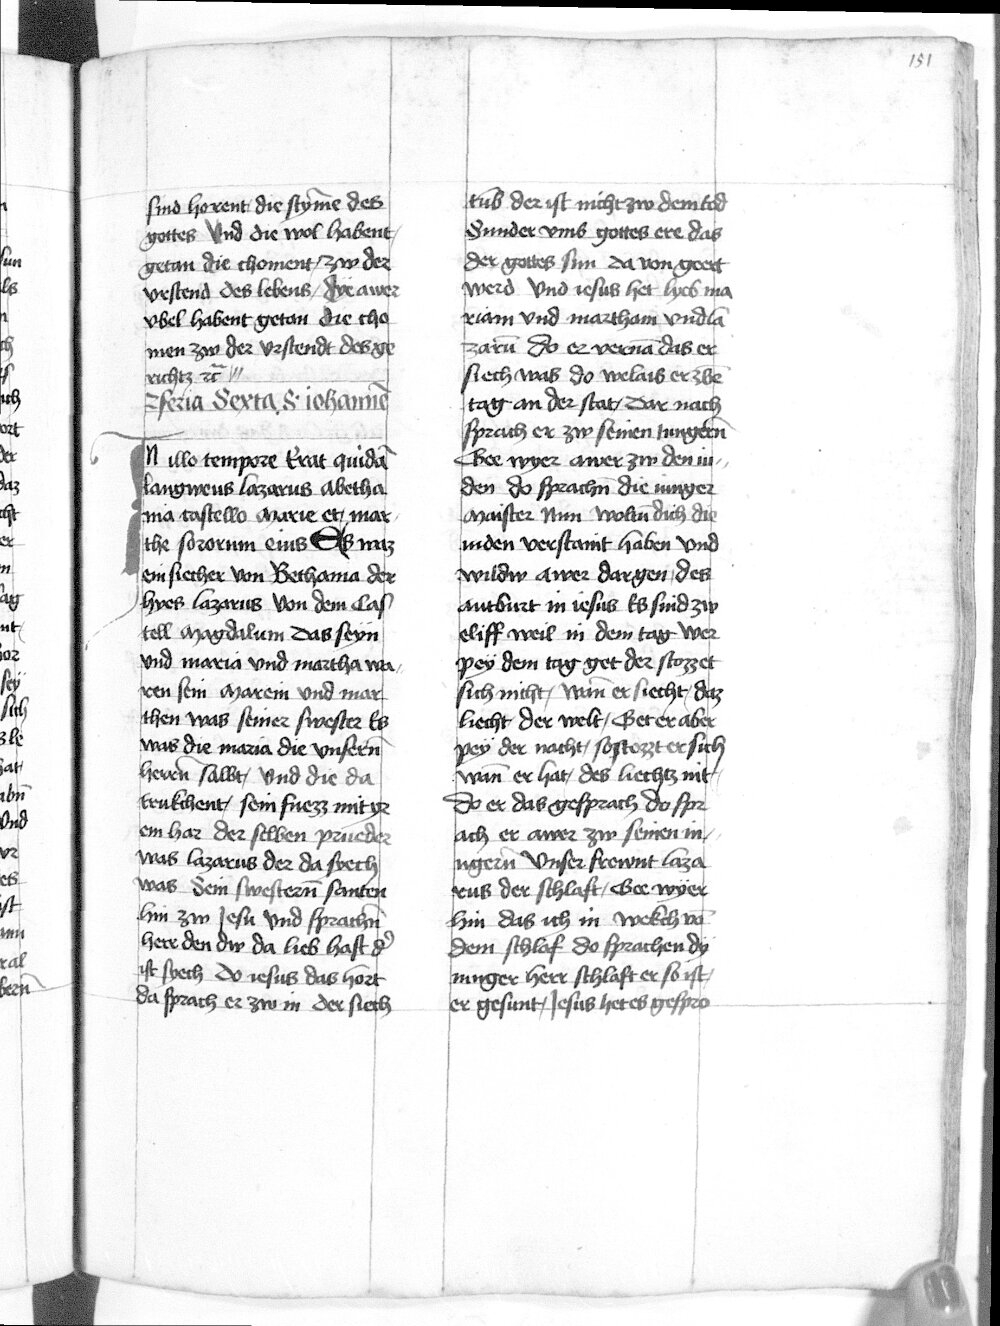 151
sind horent die stym̄e des
gottes Und die wol habent
getan die choment zw der
vrstend des lebens Dye awer
vbel habent getan die cho
men zw der vrstendt des ge
richtz
feria Sexta S. iohannē
IN illo tempore Erat quidā
langwens lazarus abetha
nia castello Marie et mar
the sororum eius Es waz
ein siecher von Bethania der
hyes lazarus von dem Cas
tell Magdalum das seyn
vnd maria vnd martha wa
ren sein Marein vnd mar
then was seiner swester Es
was die maria die vnsern̄
herrn̄ salbt vnd die da
trukchent sein fuezz mit yr
em har der selben prueder
was lazarus der da syech
was Sein swestern̄ santen
hin zw Jesu vnd sprachn̄
herr den dw da lieb hast d᾽
ist syech Do iesus das hort
da sprach er zw in der siech
tūb der ist nicht zw dem tod
Sunder vmb gottes ere das
der gottes sun da von geert
werd Vnd iesus het lyeb ma
riam vnd martham vnd la
zarū Do er vernā das er
siech was do welaib er zbē
tag an der stat Dar nach
sprach er zw seinen iungern̄
Gee wyer awer zw den iu
den do sprachn̄ die iunger
Maister Nun woltn̄ dich die
iuden verstaint haben Vnd
wildw awer dar gen des
antburt in iesus Es sind zw
eliff weil in dem tag Wer
pey dem tag get der stozzet
sich nicht Wan̄ er siecht daz
liecht der welt Get er aber
pey der nacht so stozzt er sich
wan̄ er hat des liechtz nit
Do er das gesprach do spr
ach er awer zw seinen iu
ngern̄ Vnser frewnt laza
rus der schlaft Gee wyer
hin das ich in wekch vō
dem schlaf do sprachen dy
iunger herr schlaft er so ist
er gesunt Jesus het es gespro